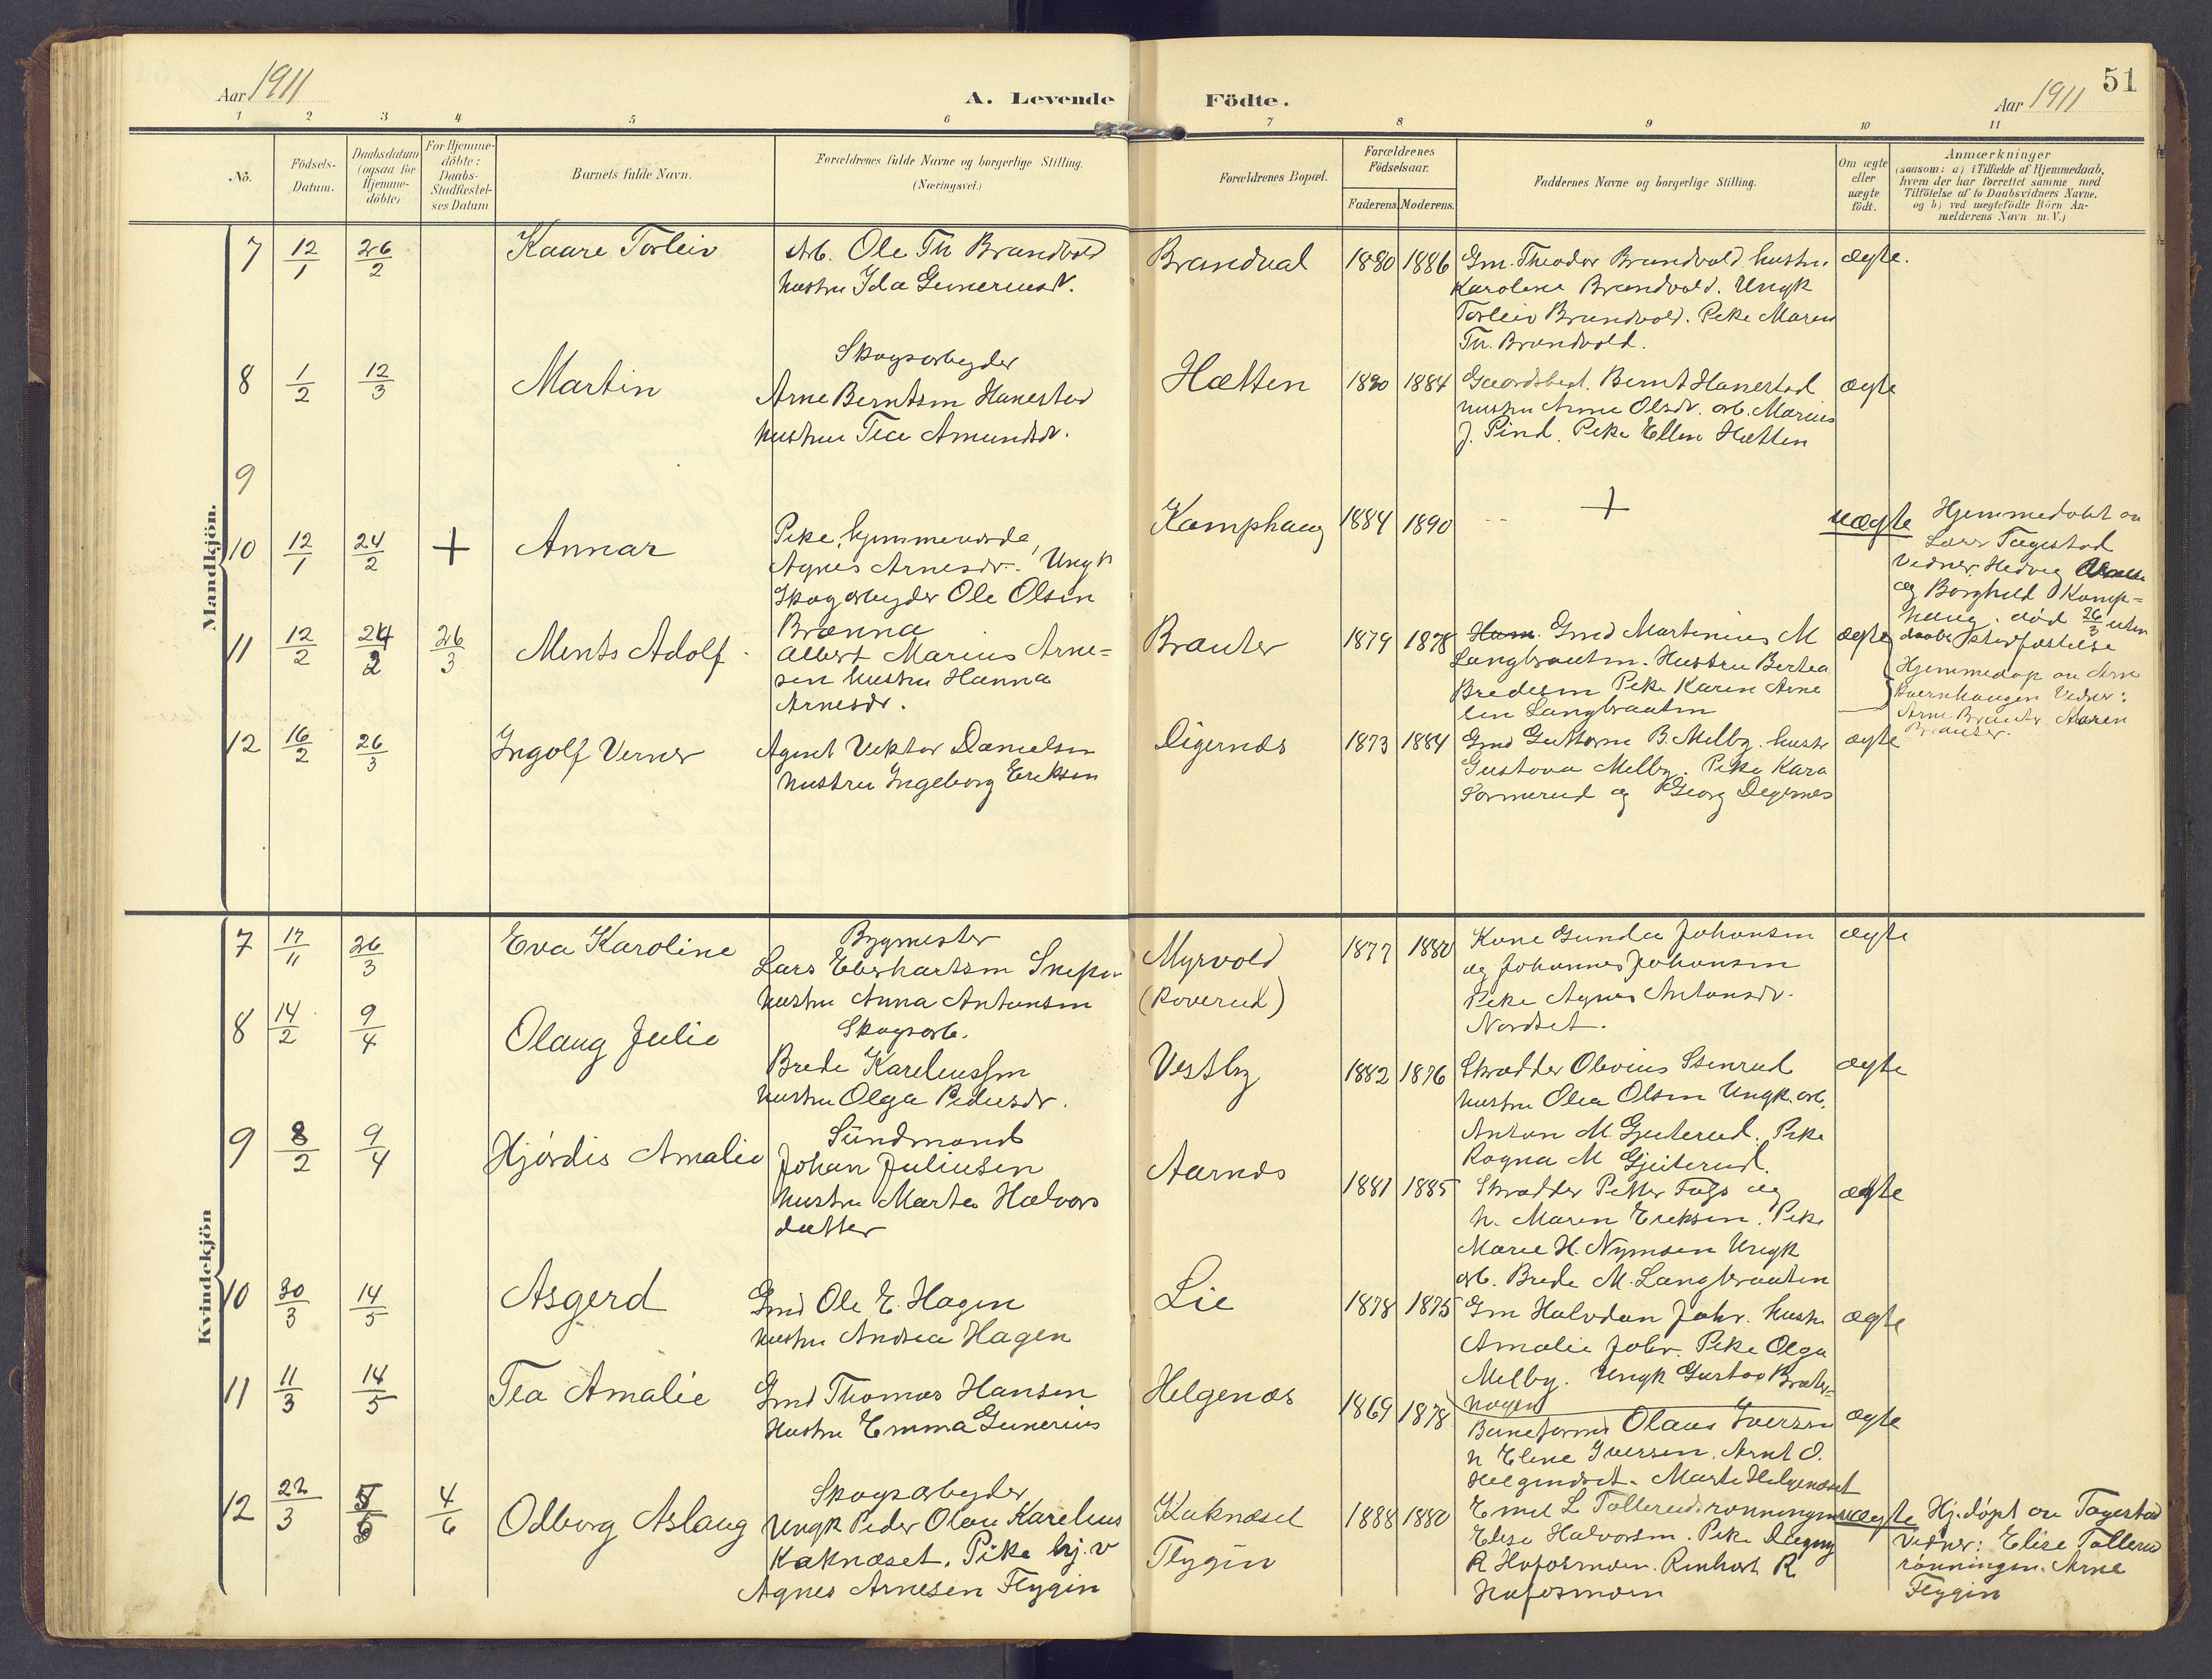 Aar 1911
A. Levende Födte.
51
Aar 1911
1 2 3 4 5 6 7 8 9 10 11
No.
Födsels-Datum.
Daabsdatum (ogsaa for Hjemme-döbte)
For Hjemme-döbte: Daabs-Stadfæstel-ses Datum
Barnets fulde Navn.
Forældrenes fulde Navne og borgerlige Stilling.
(Næringsvei.)
Forældrenes Bopæl.
Forældrenes Födselsaar.
Faderens. Moderens.
Faddernes Navne og borgerlige Stilling.
Om ægte eller uægte födt.
Anmærkninger
(saasom: a) i Tilfælde af Hjemmedaab,
hvem der har forrettet samme med
Tilföielse af to Daabsvidners Navne,
og b) ved uægtefödte Börn An-
melderens Navn m. V.)
Mandkjön.
7 12/1 26/2 Kaare Torleiv
Arb. Ole Th Brandvold
hustru Ida Gunerius d.
Brandval 1880 1886
Gm. Theodor Brandvold hustru
Karoline Brandvold. Ungk
Torleiv Brandvold. Pike Maren
Th. Brandvold.
ægte.
8 1/2 12/3 Martin
Skogsarbeyder
Arne Berntsen Hanestad
hustru Tea Amundsdr.
Hætten 1890 1884
Gaardsbest. Bernt Hanestad
hustru Anne Olsdr. arb. Marius
J. Pind. Pike Ellen Hætten
ægte
9
10 12/1 24/2 + Annar
Pike, hjemmeværde
Agnes Arnesdr. Ungk
Skogarbeyder Ole Olsen
Brænna
Kamphaug 1884 1890 +
uægte
Hjemmedøbt av
Lars Tægestad
Vidner, Hedvig
og Borghild Kamp-
haug. død 26/3 uten
daabs stadfæstelse
11 12/2 24/2 26/3 Ments Adolf
Albert Marius Arne-
sen hustru Hanna
Arnesdr.
Brauter 1879 1878
Gmd Martinius M
Langbraaten. Hustru Bertea
Bredesen Pike Karen Arne
sen Langbraaten
ægte
Hjemmedøp av Arne
Kvernhaugen Vidner:
Arne Brauter, Maren
Brauter.
12 16/2 26/3 Ingolf Verner
Agent Viktor Danielsen
hustru Ingeborg Eriksen
Digernæs 1873 1884
Gmd Guttorm B. Melby. hustr
Gustava Melby. Pike Kara
Sormerud og Georg Degernes
ægte
Kvindekjön
7 17/11 26/3 Eva Karoline
Bygmester
Lars Eberhartsen
hustru Anna Antonsen
Myrvold
(Roverud) 1877 1880
Kone Gunda Johansen
og Johannes Johansen
Pike Agnes Antonsdr.
Nordset.
ægte
8 14/2 9/4 Olaug Julie
Skogsarb.
Brede Kareliussen
hustru Olga Pedersdr.
Vestby 1882 1876
Skrædder Olivius Stenrud
hustru Olea Olsen Ungk. arb.
Anton M. Gjeiterud. Pike
Ragna M Gjeiterud.
ægte
9 8/2 9/4 Hjördis Amalie
Sündmand
Johan Juliusen
hustru Marte Halvors
datter
Aarnæs 1881 1885
Skrædder Petter Fuls og
h. Maren Eriksen. Pike
Marie H. Nymoen Ungk
arb. Brede M. Langbraaten
ægte
10 30/3 14/5 Asgerd
Gmd Ole E. Hagen
hustru Andrea Hagen
Lie 1878 1875
Gm Halvdan Johr. hustr
Amalie Johr. Pike Olga
Melby. Ungk Gustav Brater-
hagen
ægte
11 11/3 14/5 Tea Amalie
Gmd Thomas Hansen
Hustru Emma Gunerius
Helgenæs 1869 1878
Baneformd Olaus Iversen
h Eline Iversen. Arnt O.
Helgenæset. Marte Helgenæset
ægte
12 22/3 5/6 4/6 Odborg Aslaug
Skogsarbeyder
Ungk Peder Olav Karelius
Kaknæset. Pike hj.v
Agnes Arnesen Flygin
Kaknæset
Flygin 1888 1880
Emil L Tollerudsrønningen
Elise Halvorsen. Pike Dagny
R Hofosmoen. Rinhart R
Hofosmoen
uægte
Hj. döpt av Tagestad
Vidner: Elise Tollerud
rönningen. Arne
Flygin